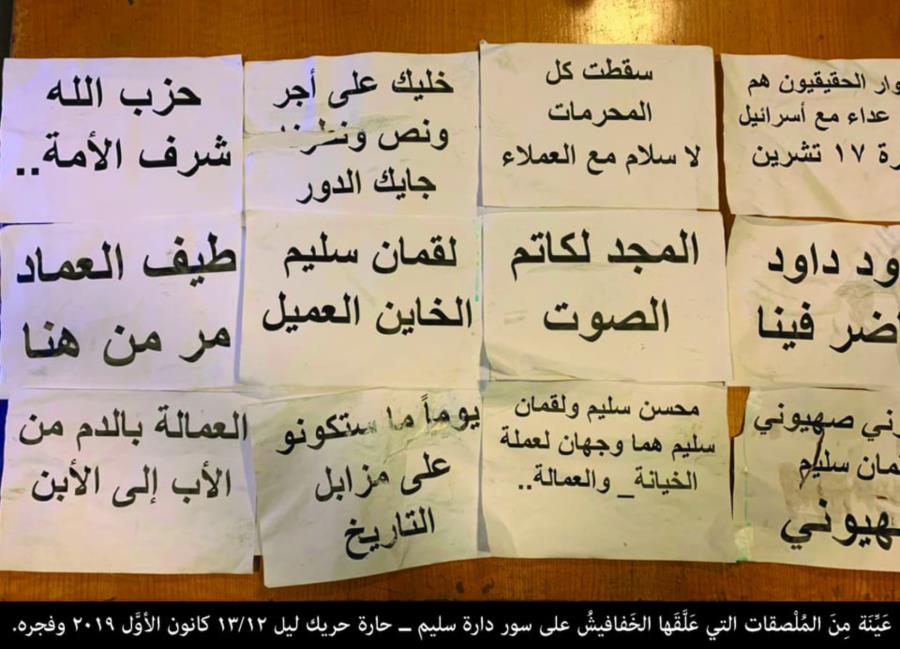 وار الحقيقيون هم
عداء مع أسرائيل
رة ١٧ تشرين
سقطت كل
المحرمات
لا سلام مع العملاء
خليك على أجر
ونص
جايك الدور
حزب الله
شرف الأمة..
ود داود
اضر فينا
المجد لكاتم
الصوت
لقمان سليم
الخاين العميل
طيف العماد
مر من هنا
ني صهيوني
مان سليم
هيوني
محسن سليم ولقمان
سليم هما وجهان لعملة
الخيانة_ والعمالة..
يوماً ما ستكونو
على مزابل
التاريخ
العمالة بالدم من
الأب إلى الأبن
عَيِّنَة مِنَ المُلْصقات التي عَلَّقَها الخَفافيشُ على سور دارة سليم ــ حارة حريك ليل ١٣/١٢ كانون الأوَّل ٢٠١٩ وفجره.